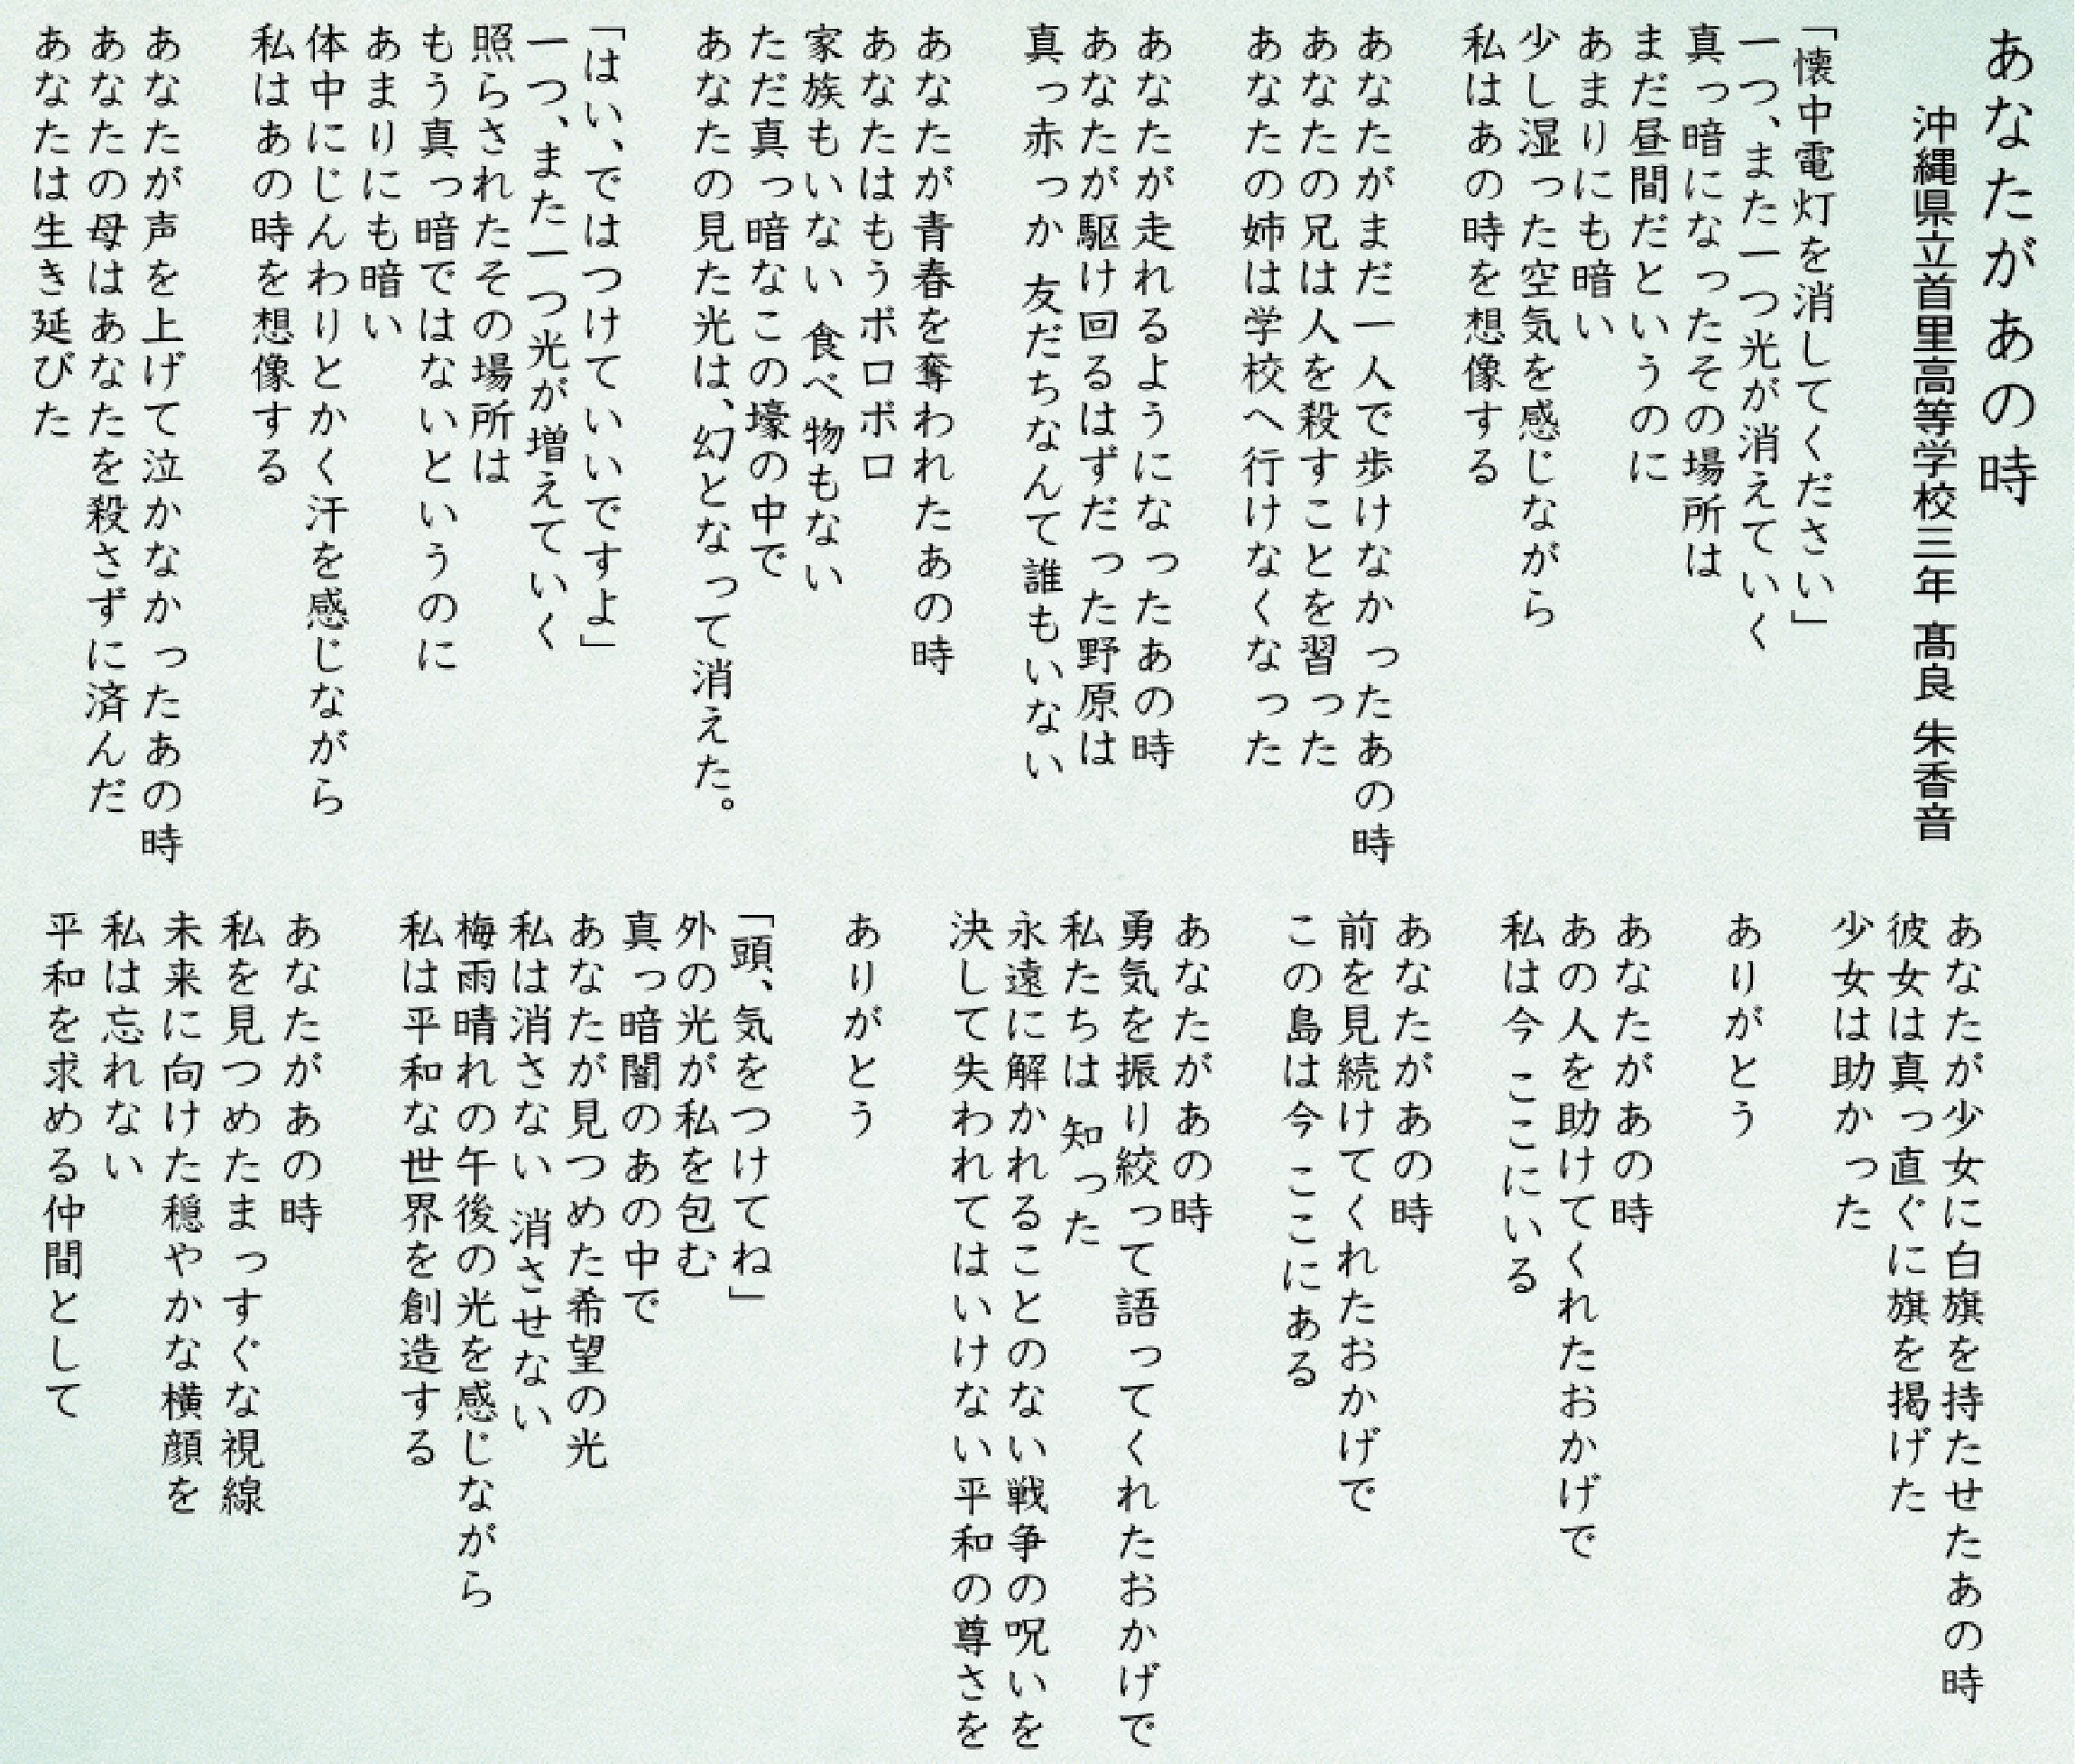 あなたがあの時
沖縄県立首里高等学校三年 髙良 朱香音
「懐中電灯を消してください」
一つ、また一つ光が消えていく
真っ暗になったその場所は
まだ昼間だというのに
あまりにも暗い
少し湿った空気を感じながら
私はあの時を想像する
あなたがまだ一人で歩けなかったあの時
あなたの兄は人を殺すことを習った
あなたの姉は学校へ行けなくなった
あなたが走れるようになったあの時
あなたが駆け回るはずだった野原は
真っ赤っか 友だちなんて誰もいない
あなたが青春を奪われたあの時
あなたはもうボロボロ
家族もいない 食べ物もない
ただ真っ暗なこの壕の中で
あなたの見た光は、幻となって消えた。
「はい、ではつけていいですよ」
一つ、また一つ光が増えていく
照らされたその場所は
もう真っ暗ではないというのに
あまりにも暗い
体中にじんわりとかく汗を感じながら
私はあの時を想像する
あなたが声を上げて泣かなかったあの時
あなたの母はあなたを殺さずに済んだ
あなたは生き延びた
あなたが少女に白旗を持たせたあの時
彼女は真っ直ぐに旗を掲げた
少女は助かった
ありがとう
あなたがあの時
あの人を助けてくれたおかげで
私は今 ここにいる
あなたがあの時
前を見続けてくれたおかげで
この島は今 ここにある
あなたがあの時
勇気を振り絞って語ってくれたおかげで
私たちは 知った
永遠に解かれることのない戦争の呪いを
決して失われてはいけない平和の尊さを
ありがとう
「頭、気をつけてね」
外の光が私を包む
真っ暗闇のあの中で
あなたが見つめた希望の光
私は消さない 消させない
梅雨晴れの午後の光を感じながら
私は平和な世界を創造する
あなたがあの時
私を見つめたまっすぐな視線
未来に向けた穏やかな横顔を
私は忘れない
平和を求める仲間として